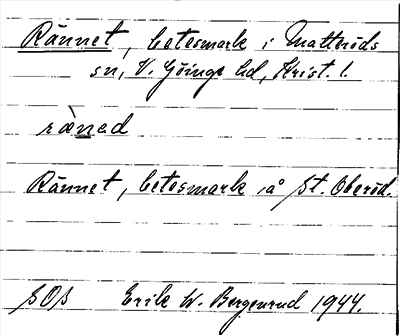 Rännet, betesmark i Matteröds
sn, V. Göinge hd, Krist. l.
ræned
Rännet, betesmark å St. Oberöd.
SOS Erik W. Bergenrud 1944.